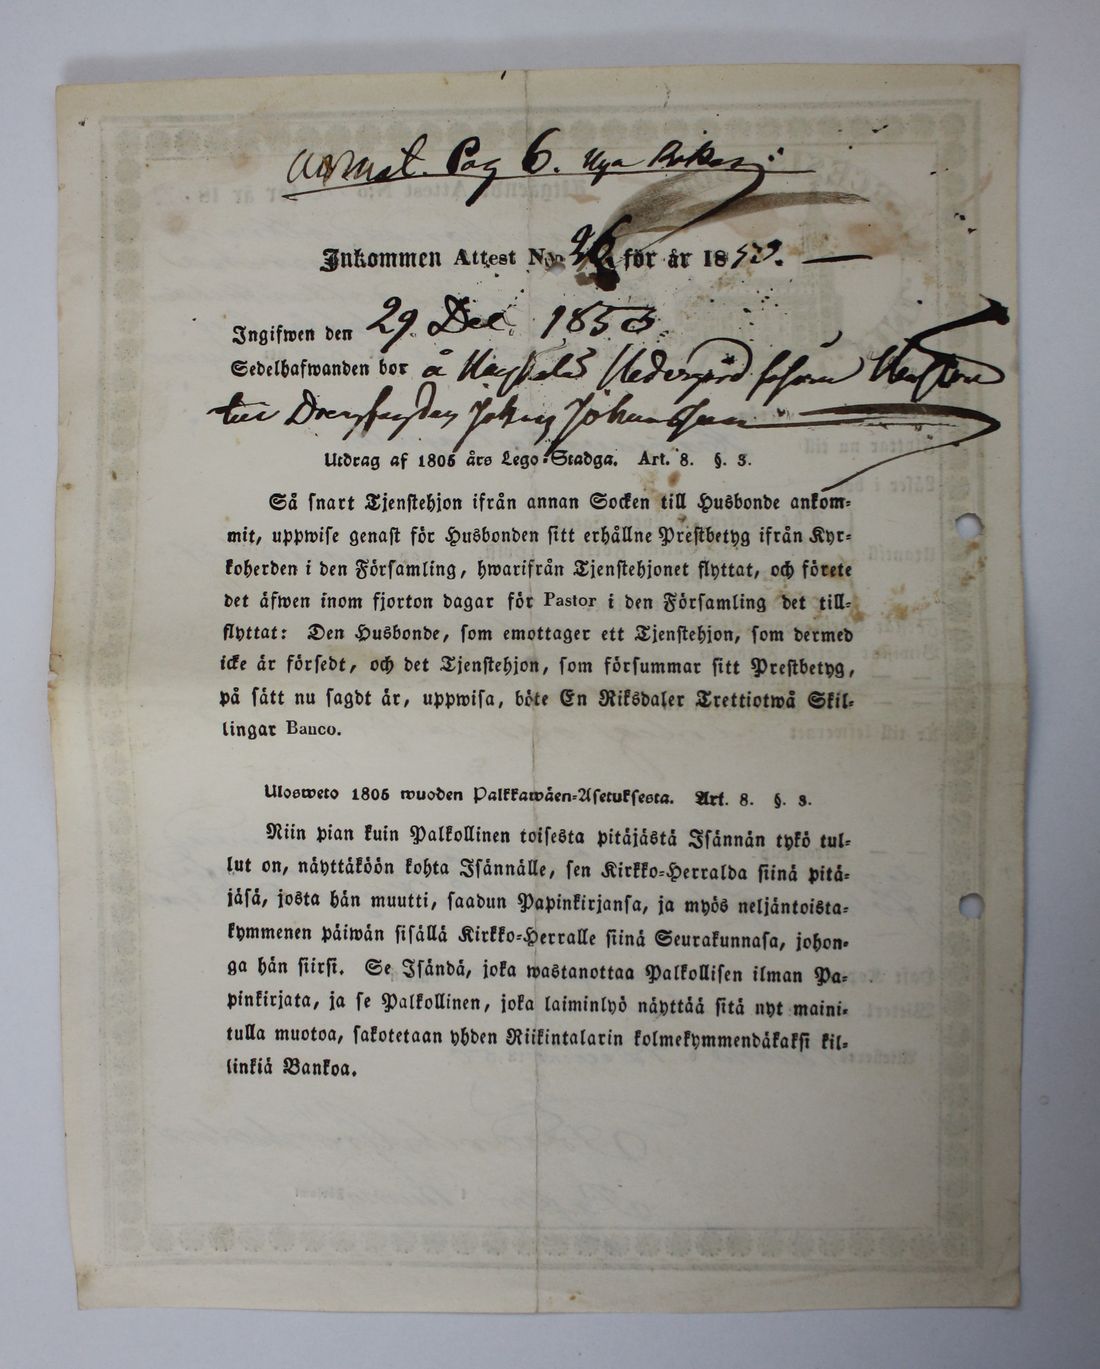 Pag 6. Nya
Inkommen Attest N:o 26 för år 1853.
Ingifwen den 29 Dec 1853
Sedelhafwanden bor å Nedergård såsom
till Johan Johansson
Utdrag af 1805 års Lego-Stadga. Art. 8. §. 3.
Så snart Tjenstehjon ifrån annan Socken till Husbonde ankom-
mit, uppwise genast för Husbonden sitt erhållne Prestbetyg ifrån Kyr-
koherden i den Församling, hwarifrån Tjenstehjonet flyttat, och förete
det äfwen inom fjorton dagar för Pastor i den Församling det till-
flyttat: Den Husbonde, som emottager ett Tjenstehjon, som dermed
icke är försedt, och det Tjenstehjon, som försummar sitt Prestbetyg,
på sätt nu sagdt är, uppwisa, böte En Riksdaler Trettiotwå Skil-
lingar Banco.
Ulosweto 1805 wuoden Palkkawäen-Asetuksesta. Art. 8. §. 3.
Niin pian kuin Palkollinen toisesta pitäjästä Isännän tykö tul-
lut on, näyttäköön kohta Isännälle, sen Kirkko-Herralda siinä pitä-
jäsä, josta hän muutti, saadun Papinkirjansa, ja myös neljäntoista-
kymmenen päiwän sisällä Kirkko-Herralle siinä Seurakunnasa, johon-
ga hän siirsi. Se Isändä, joka wastanottaa Palkollisen ilman Pa-
pinkirjata, ja se Palkollinen, joka laiminlyö näyttää sitä nyt maini-
tulla muotoa, sakotetaan yhden Riikintalarin kolmekymmendäkaksi kil-
linkiä Bankoa.